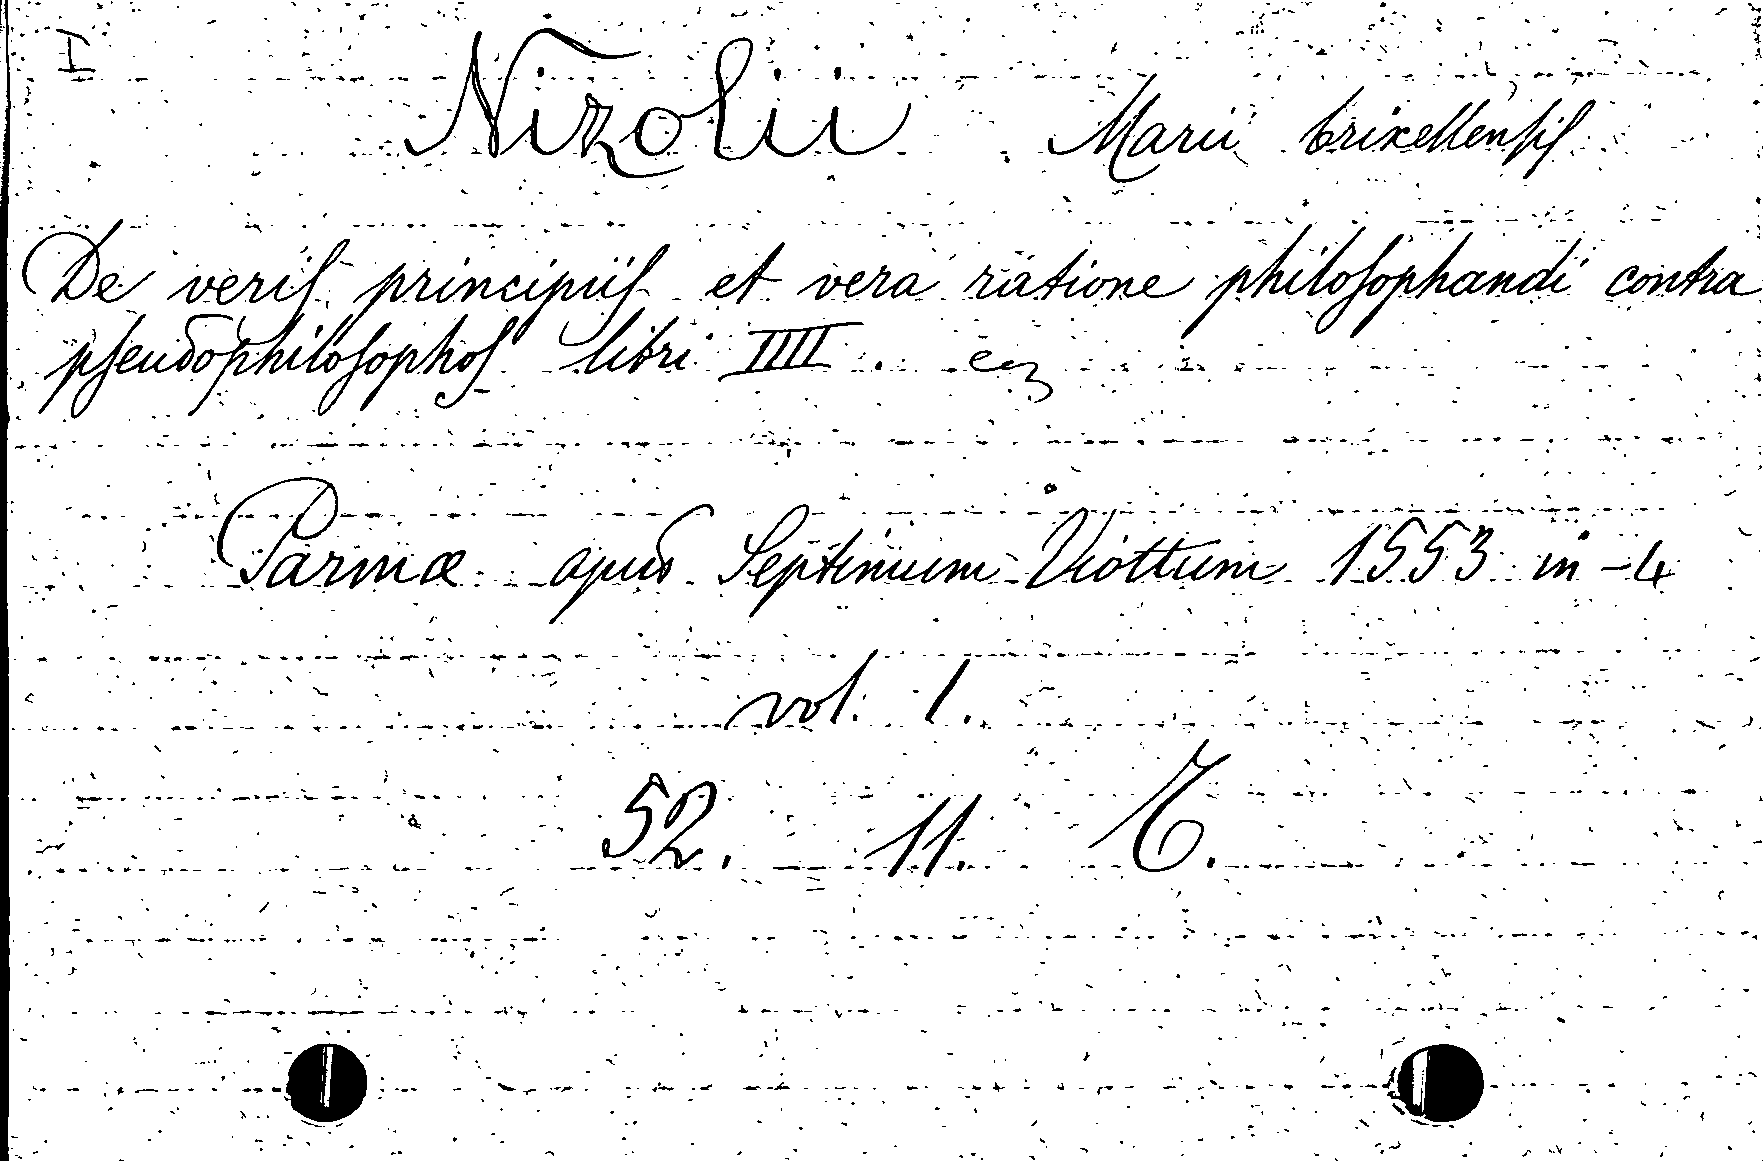 I
Nizolii Marii brixellensis
De veris principiis et vera ratione philosophandi contra
pseudophilosophos libri IIII.
Parmæ apud Septimium Viottum 1553 in-4
vol. 1.
52. 11. C.